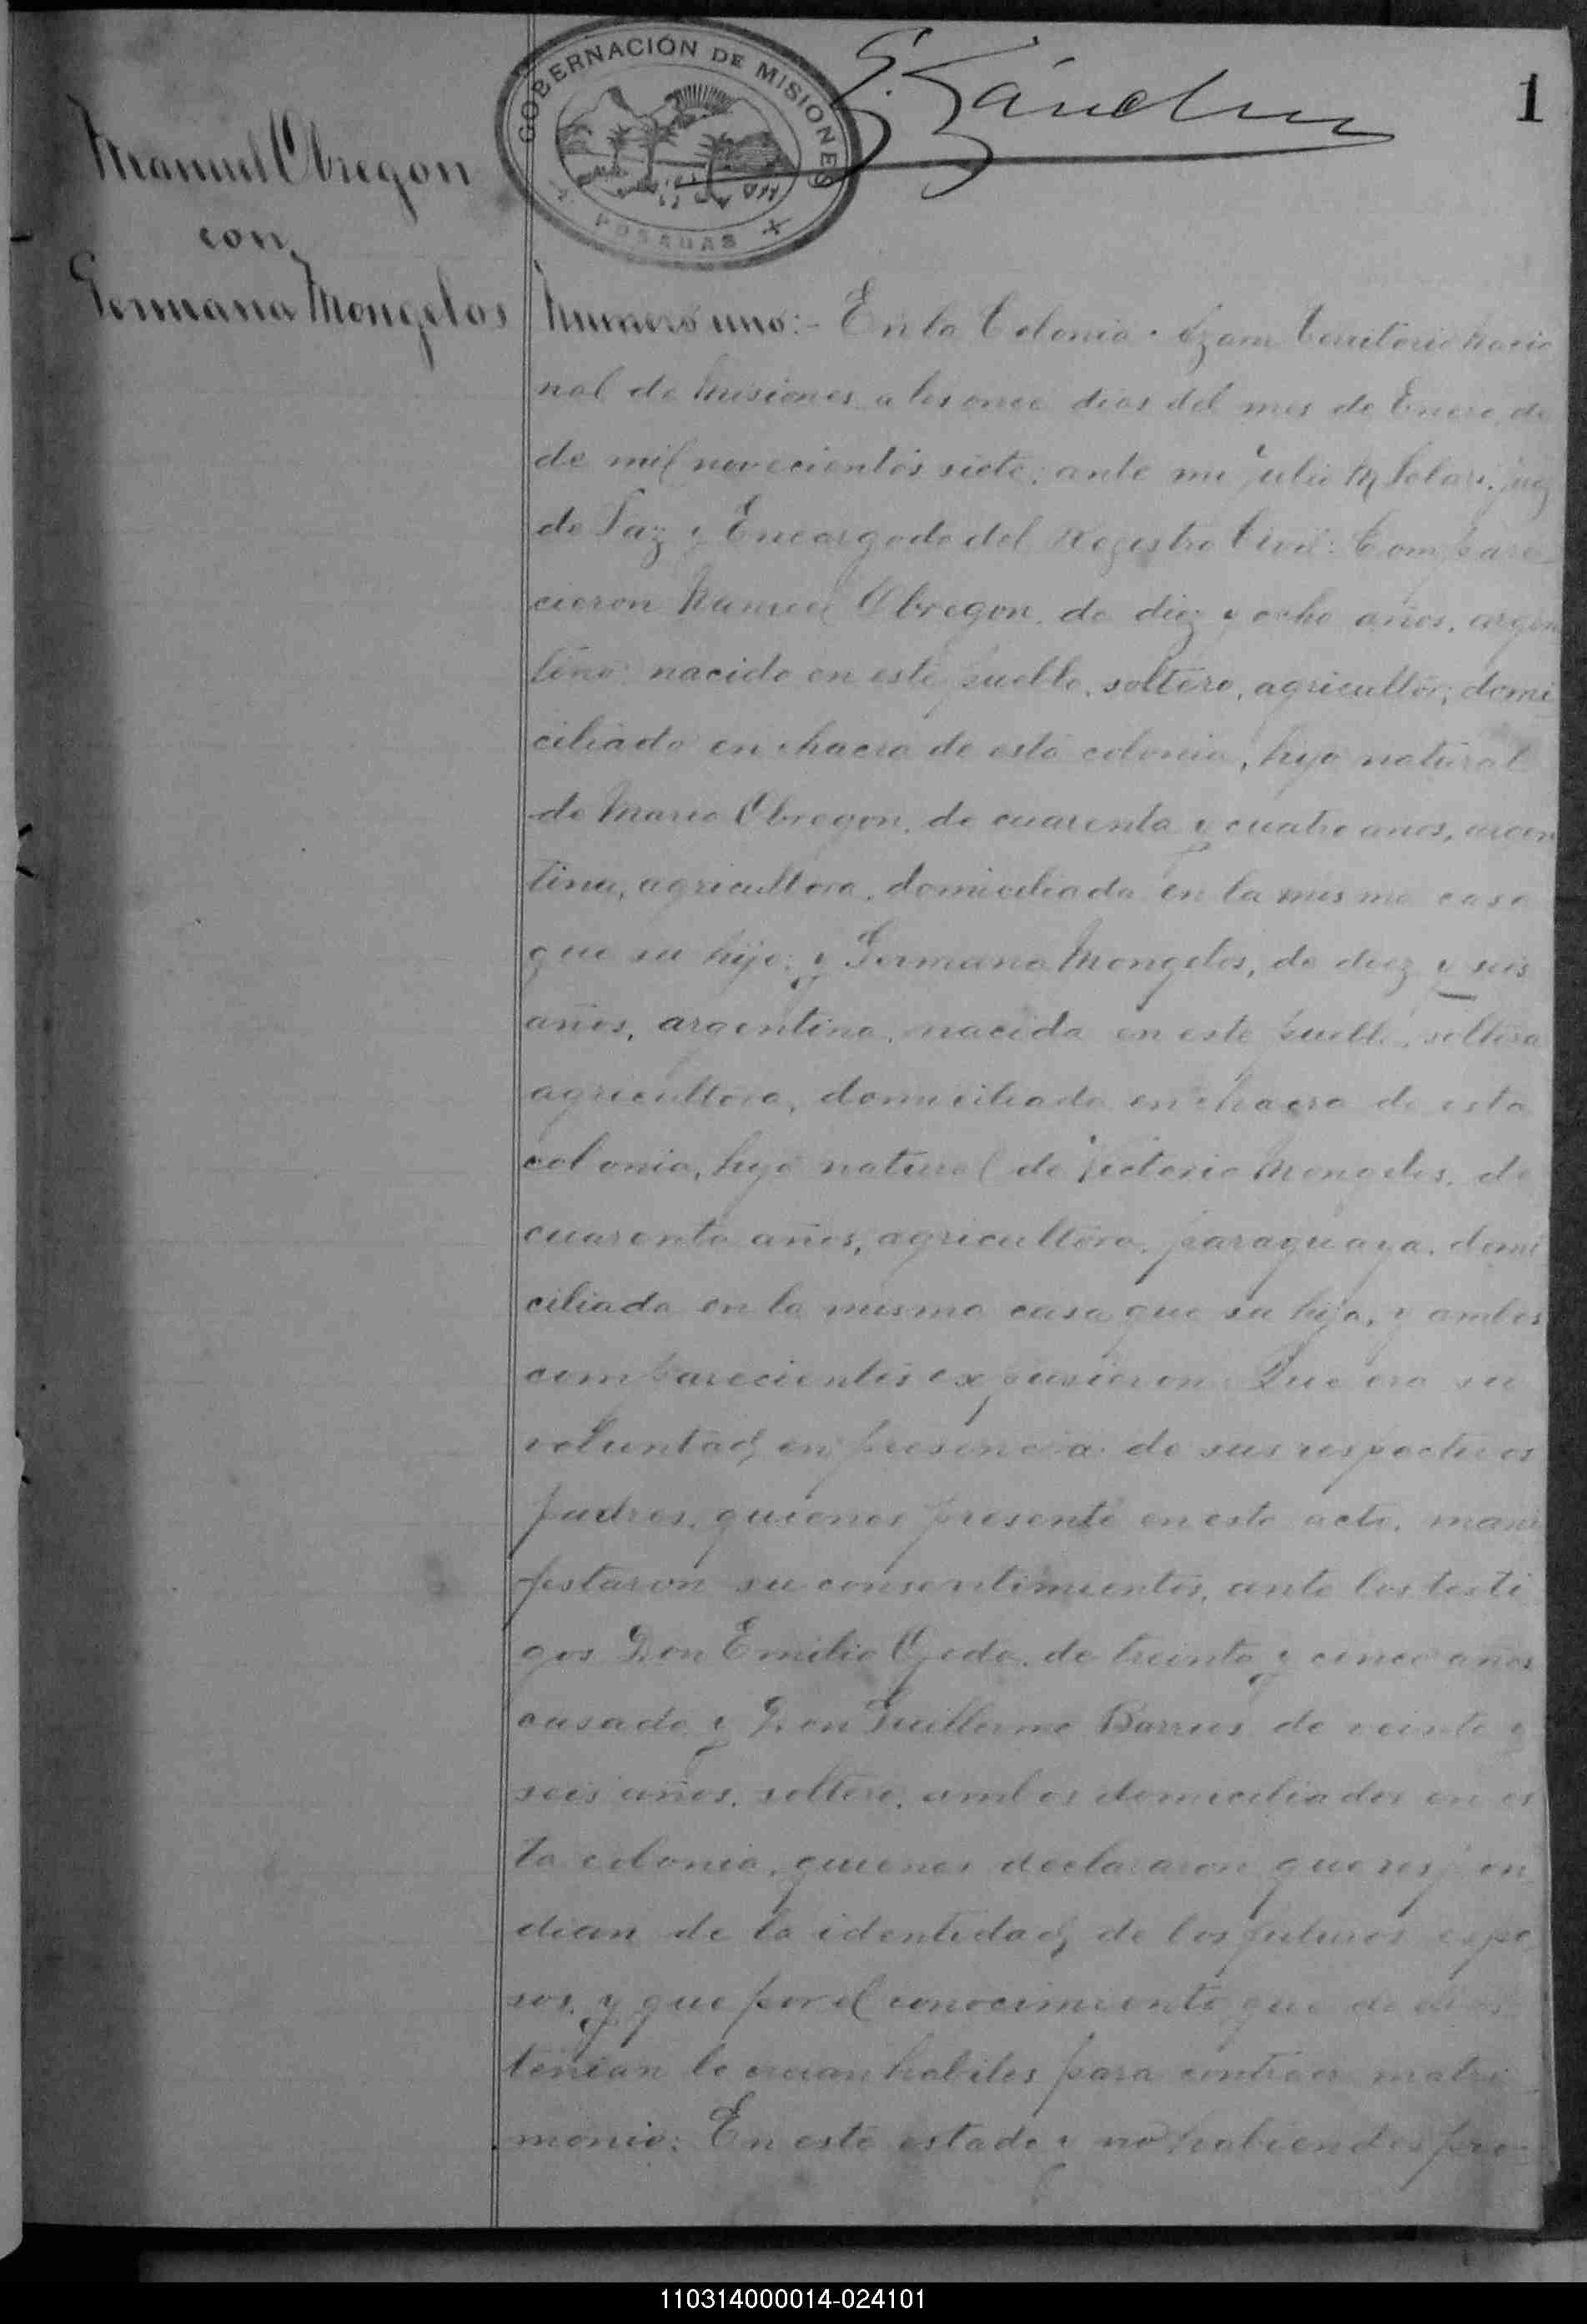 GOBERNACIÓN DE MISIONES
POSADAS
G. Sánchez
1
Manuel Obregon
con
Germana Mongelos
Numero uno:- En la Colonia Azara Territorio Nacio
nal de Misiones a los once dias del mes de Enero, de
de mil novecientos siete; ante mi Julio M Solari, juez
de Paz y Encargado del Registro Civil: Compare
cieron Manuel Obregon, de diez y ocho años, argen
tino nacido en este pueblo, soltero, agricultor, domi
ciliado en chacra de esta colonia, hijo natural
de Maria Obregon, de cuarenta y cuatro anos, argen
tina, agricultora, domiciliada en la misma casa
que su hijo; y Germana Mongelos, de diez y seis
años, argentina, nacida en este pueblo, soltera
agricultora, domiciliada en chacra de esta
colonia, hija natural de Victoria Mongelos, de
cuarenta años, agricultora, paraguaya, domi
ciliada en la misma casa que su hija, y ambos
comparecientes expusieron: Que era su
voluntad, en presencia de sus respectivos
padres, quienes presente en este acto, mani
festaron su consentimientos, ante los testi
gos Don Emilio Ojeda, de treinta y cinco años
casado y Don Guillermo Barrios de veinte y
seis años, soltero, ambos domiciliados en es
ta colonia, quienes declararon que respon
dian de la identidad, de los futuros espo
sos, y que por el conocimiento que de ellos
tenian lo creian habiles para contraer matri
monio; En este estado y no habiendos pro-
110314000014-024101